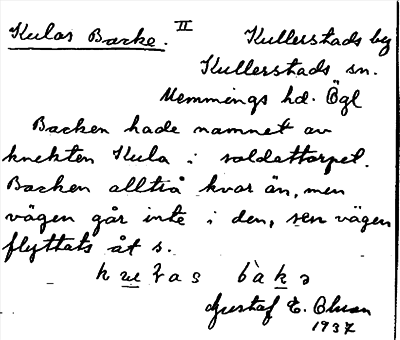 Kulas Backe. II
Kullerstads by
Kullerstads sn.
Memmings hd. Ögl
Backen hade namnet av
knekten Kula i soldattorpet.
Backen alltså kvar än, men
vägen går inte i den, sen vägen
flyttats åt s.
Gustaf E. Olson
1937